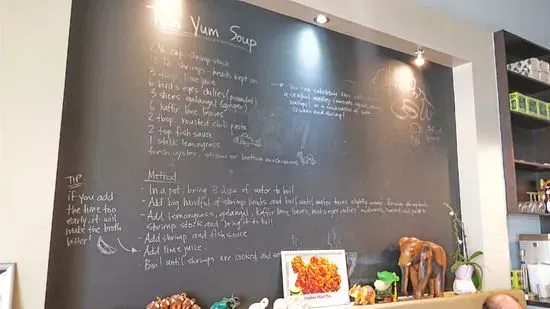 Tom Yum Soup
2 ½ cup shrimp stock
10-12 shrimps - heads kept on
3 tbsp lime juice
6 bird's eyes chilies (pounded)
3 slices galangal (ginger)
6 kaffir lime leaves
2 tbsp. roasted chili paste
2 tsp fish sauce
1 stalk lemongrass
fresh oyster, straw or button mushrooms
→ You can substitute this with
a seafood medley
scallops), or a combination of both
chicken and shrimp!
Method
- In a pot, bring 3 cups of water to boil
- Add big handful of shrimp heads and boil until water turns slightly orange. Remove shrimp heads.
- Add lemongrass, galangal, kaffir lime leaves, bird's eyes chilies, mushrooms, roasted chili paste
shrimp stock and bring it to boil
- Add shrimp and fish sauce
- Add lime juice.
- Boil until shrimps are cooked and
TIP:
if you add
the lime too
early, it will
make the broth
bitter!